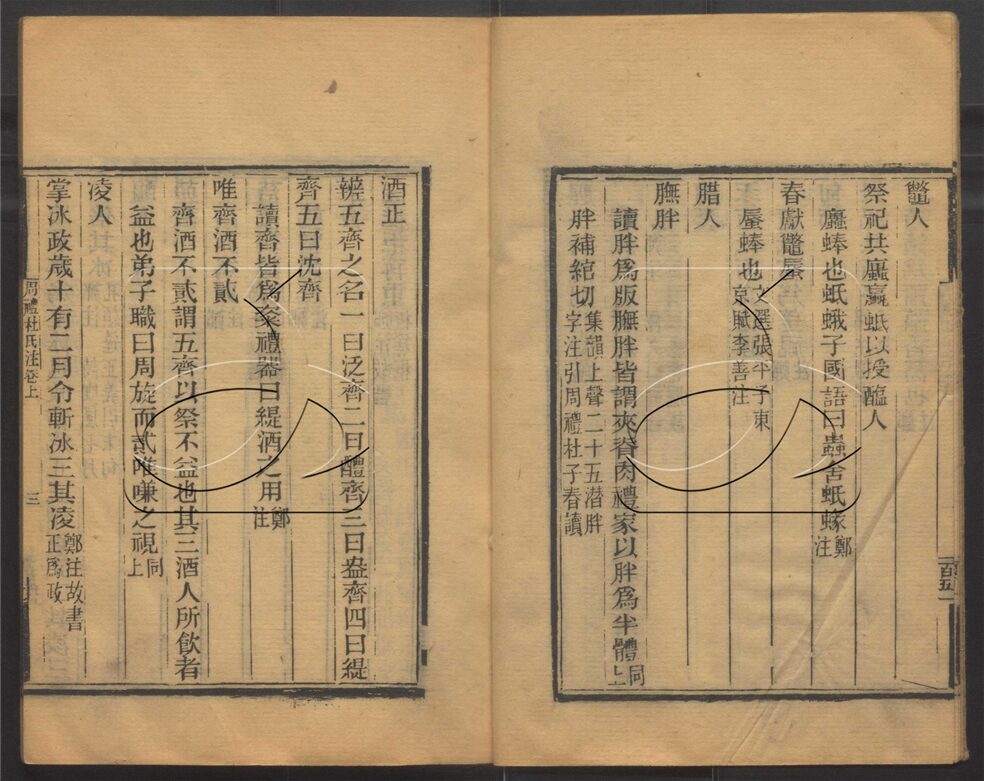 鼈人
祭祀共蠯蠃蚳以授醢人
蠯蜯也蚳蛾子國語曰蟲舍蚳蝝鄭注
春獻鼈蜃
蜃蜯也文選張平子東京賦李善注
腊人
膴胖
讀胖爲版膴胖皆謂夾脊肉禮家以胖爲半體同上
胖補綰切集韻上聲二十五潸胖字注引周禮杜子春讀
酒正
辨五齊之名一曰泛齊二曰醴齊三曰盎齊四曰緹
齊五曰沈齊
讀齊皆爲粢禮器曰緹酒之用鄭注
唯齊酒不貳
齊酒不貳謂五齊以祭不益也其三酒人所飲者
益也弟子職曰周旋而貳唯嗛之視同上
凌人
掌冰政歲十有二月令斬冰三其凌鄭注故書正爲政
周禮杜氏注卷上
三